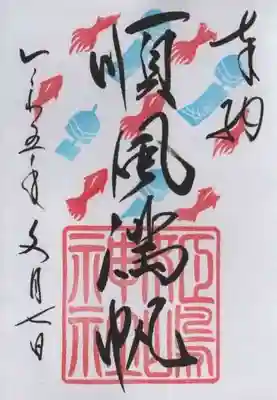 奉拝
順風満帆
令和五年文月七日
神社